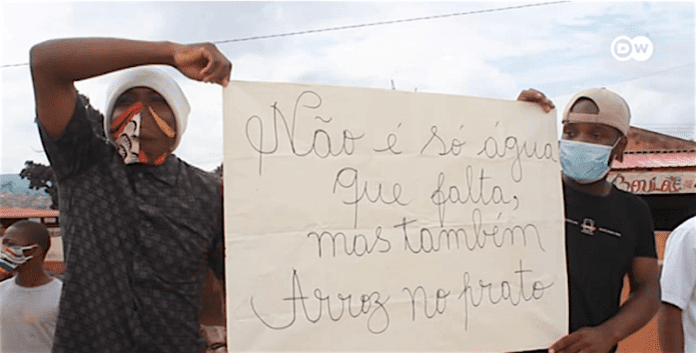 DW
Não é só água
que falta,
mas também
Arroz no prato